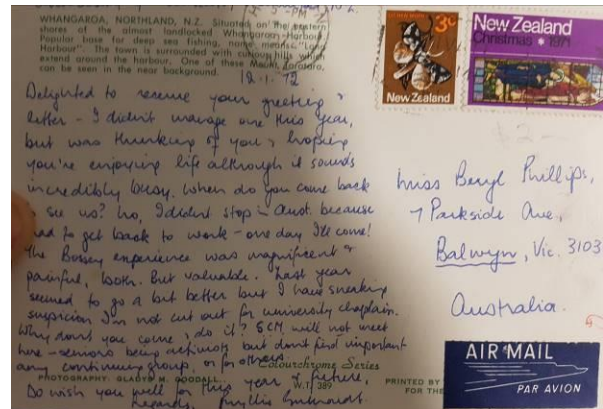 WHANGAROA, NORTHLAND, N.Z. Situated on the eastern
shores of the almost landlocked Whangaroa Harbour.
Popular base for deep sea fishing, name means "Long
Harbour". The town is surrounded with curious hills which
extend around the harbour. One of these Mount
can be seen in the near background.
18.1.72
Delighted to receive your greeting &
letter - I didn't manage one this year,
but was thinking of you & hoping
you're enjoying life although it sounds
incredibly busy. When do you come back
to see us? No, I didn't stop in Aust. because
had to get back to work - one day I'll come!
The Bossey experience was magnificent &
painful, both. But valuable. Last year
seemed to go a bit better but I have sneaking
suspicion I'm not cut out for university chaplain.
Why don't you come & do it? SCM will not meet
here - seniors being activists but don't find important
any continuing group, or for others.
Colourchrome Series
PHOTOGRAPHY: GLADYS M. GOODALL
W.T. 389
PRINTED BY
FOR THE
Do wish you well for this year & future,
Regards, Phyllis
3c
New Zealand
New Zealand
Christmas 1971
Miss Beryl Phillips,
7 Parkside Ave.,
Balwyn, Vic. 3103
Australia.
AIR MAIL
PAR AVION